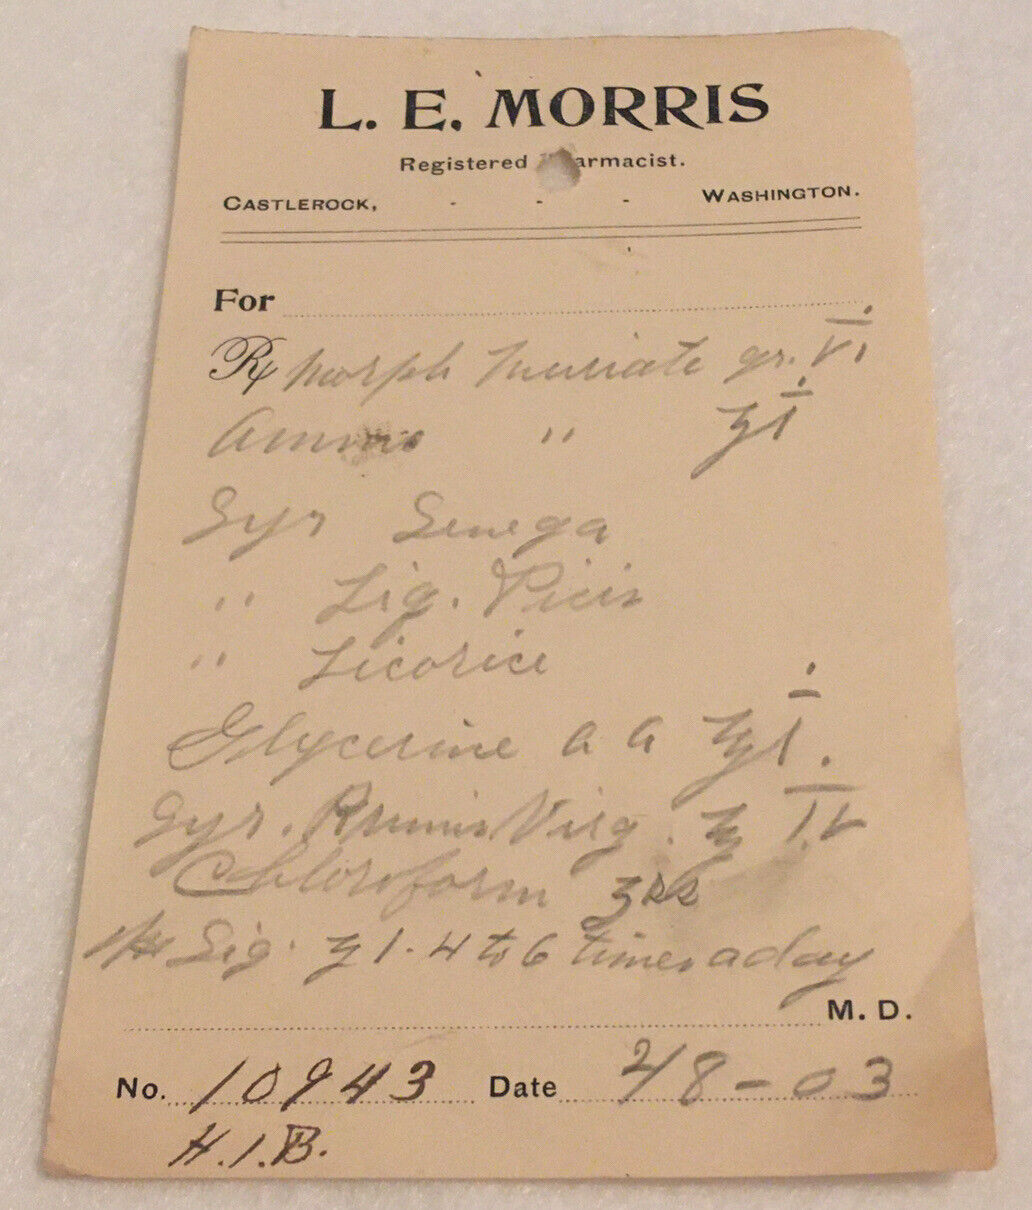 L. E. MORRIS
Registered Pharmacist.
CASTLEROCK, - - - WASHINGTON.
For
℞ Morph Muriate gr. VI
Ammo " ʒ i
Syr Senega
" Liq. Picis
" Licorice
Glycerine a a ℥ i.
Syr. Prunis Virg. ℥ IV
Chloroform ʒ ss
Sig. ʒ 1. 4 to 6 times a day
M. D.
No. 10943 Date 2/8-03
H.I.B.